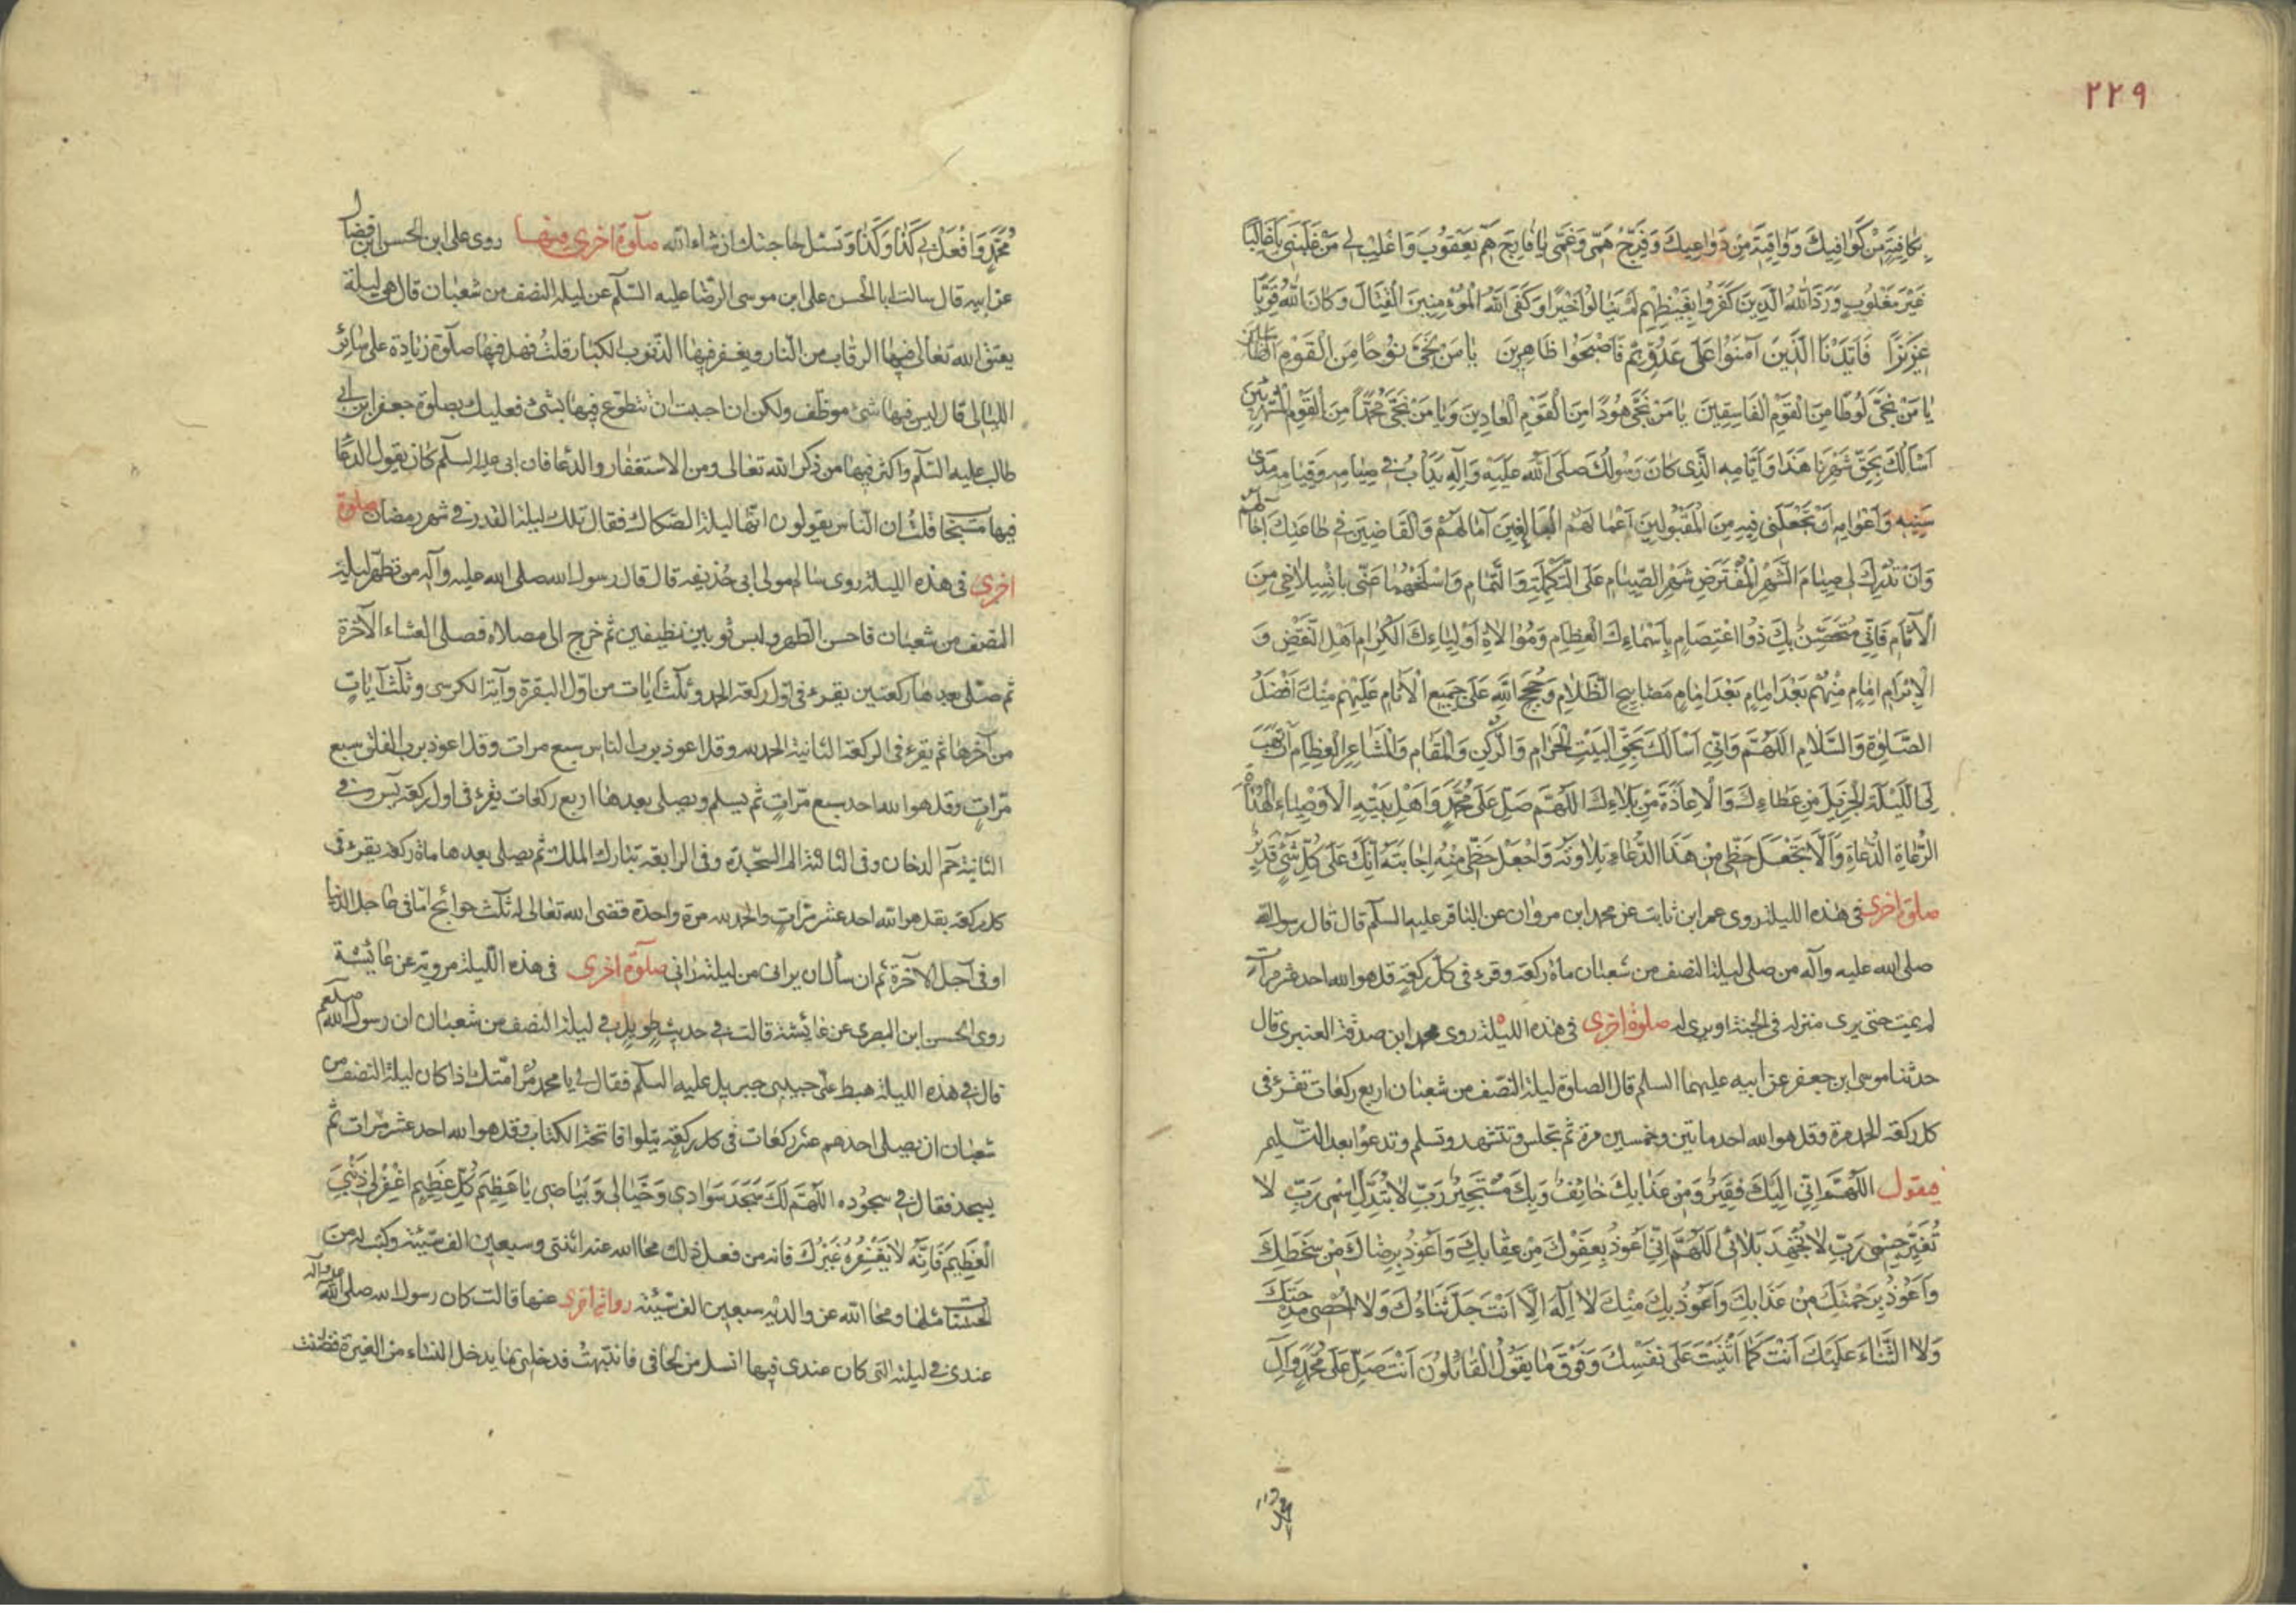 ٢٢٩
بكافية من كوافيك وواقية من دواعيك وفرج همي وغمي يا فارج هم يعقوب واغلب لي من غلبني يا غالبا
غَيْرَ مَغْلُوبٍ وَرَدَّ اللهُ الَّذِينَ كَفَرُوا بِغَيْظِهِمْ لَمْ يَنَالُوا خَيْرًا وَكَفَى اللهُ الْمُؤْمِنِينَ الْقِتَالَ وَكَانَ اللهُ قَوِيًّا
عَزِيزًا فَأَيَّدْنَا الَّذِينَ آمَنُوا عَلَى عَدُوِّهِمْ فَأَصْبَحُوا ظَاهِرِينَ يَا مَنْ نَجَّى نُوحًا مِنَ الْقَوْمِ الظَّالِمِينَ
يَا مَنْ نَجَّى لُوطًا مِنَ الْقَوْمِ الْفَاسِقِينَ يَا مَنْ نَجَّى هُودًا مِنَ الْقَوْمِ الْعَادِينَ وَيَا مَنْ نَجَّى مُحَمَّدًا مِنَ الْقَوْمِ الْمُسْتَهْزِئِينَ
أَسْأَلُكَ بِحَقِّ شَهْرِنَا هَذَا وَأَيَّامِهِ الَّذِي كَانَ رَسُولُكَ صَلَّى اللهُ عَلَيْهِ وَآلِهِ يَدْأَبُ فِي صِيَامِهِ وَقِيَامِهِ مَدَى
سِنِيهِ وَأَعْوَامِهِ أَنْ تَجْعَلَنِي فِيهِ مِنَ الْمَقْبُولِينَ أَعْمَالُهُمُ الْبَالِغِينَ آمَالَهُمْ وَالْقَاضِينَ فِي طَاعَتِكَ آجَالَهُمْ
وَأَنْ تُدْرِكَ لِي صِيَامَ الشَّهْرِ الْمُفْتَرَضِ شَهْرِ الصِّيَامِ عَلَى التَّكْمِلَةِ وَالتَّمَامِ وَاسْلَخْهُمَا عَنِّي بِانْسِلَاخِي مِنَ
الْآثَامِ فَإِنِّي مُتَحَصِّنٌ بِكَ ذُو اعْتِصَامٍ بِأَسْمَاءِكَ الْعِظَامِ وَمُوَالَاةِ أَوْلِيَاءِكَ الْكِرَامِ أَهْلِ النَّقْضِ وَ
الْإِبْرَامِ إِمَامٍ مِنْهُمْ بَعْدَ إِمَامٍ بَعْدَ إِمَامٍ مَصَابِيحِ الظَّلَامِ وَحُجَجِ اللهِ عَلَى جَمِيعِ الْأَنَامِ عَلَيْهِمْ مِنْكَ أَفْضَلُ
الصَّلَاةِ وَالسَّلَامِ اللَّهُمَّ وَإِنِّي أَسْأَلُكَ بِحَقِّ الْبَيْتِ الْحَرَامِ وَالرُّكْنِ وَالْمَقَامِ وَالْمَشَاعِرِ الْعِظَامِ أَنْ تَهَبَ
لِيَ اللَّيْلَةَ الْجَزِيلَ مِنْ عَطَاءِكَ وَالْإِعَاذَةَ مِنْ بَلَاءِكَ اللَّهُمَّ صَلِّ عَلَى مُحَمَّدٍ وَأَهْلِ بَيْتِهِ الْأَوْصِيَاءِ الْهُدَاةِ
الرُّعَاةِ الدُّعَاةِ وَأَلَّا تَجْعَلْ حَظِّي مِنْ هَذَا الدُّعَاءِ تِلَاوَتَهُ وَاجْعَلْ حَظِّي مِنْهُ إِجَابَتَهُ إِنَّكَ عَلَى كُلِّ شَيْءٍ قَدِيرٌ
صلوة اخرى في هذه الليلة روى عمر ابن ثابت عن محمد ابن مروان عن الباقر عليه السلم قال قال رسول الله
صلى الله عليه وآله من صلى ليلة النصف من شعبان مأة ركعة وقرء في كل ركعة قل هو الله احد عشر مرات
لم يمت حتى يرى منزله في الجنة او يرى له صلوة اخرى في هذه الليلة روى محمد ابن صدقة العنبري قال
حدثنا موسى ابن جعفر عن ابيه عليهما السلم قال الصلوة ليلة النصف من شعبان اربع ركعات تقرء في
كل ركعة الحمد مرة وقل هو الله احد ماتين وخمسين مرة ثم تجلس وتتشهد وتسلم وتدعوا بعد التسليم
فيقول اللَّهُمَّ إِنِّي إِلَيْكَ فَقِيرٌ وَمِنْ عَذَابِكَ خَائِفٌ وَبِكَ مُسْتَجِيرٌ رَبِّ لَا تُبَدِّلْ اسْمِي رَبِّ لَا
تُغَيِّرْ جِسْمِي رَبِّ لَا تُجْهِدْ بَلَائِي اللَّهُمَّ إِنِّي أَعُوذُ بِعَفْوِكَ مِنْ عِقَابِكَ وَأَعُوذُ بِرِضَاكَ مِنْ سَخَطِكَ
وَأَعُوذُ بِرَحْمَتِكَ مِنْ عَذَابِكَ وَأَعُوذُ بِكَ مِنْكَ لَا إِلَهَ إِلَّا أَنْتَ جَلَّ ثَنَاءُكَ وَلَا أُحْصِي مِدْحَتَكَ
وَلَا الثَّنَاءَ عَلَيْكَ أَنْتَ كَمَا أَثْنَيْتَ عَلَى نَفْسِكَ وَفَوْقَ مَا يَقُولُ الْقَائِلُونَ أَنْتَ صَلِّ عَلَى مُحَمَّدٍ وَآلِ
مُحَمَّدٍ وَافْعَلْ بِي كَذَا وَكَذَا وَتسئل حاجتك ان شاء الله صلوة اخرى منها روى على ابن الحسن ابن فضال
عن ابيه قال سالت ابا الحسن على ابن موسى الرضا عليه السلم عن ليلة النصف من شعبان قال هي ليلة
يعتق الله تعالى فيها الرقاب من النار ويغفر فيها الذنوب الكبار قلت فهل فيها صلوة زيادة على سائر
الليالى قال ليس فيها شئ موظف ولكن ان احببت ان تتطوع فيها بشئ فعليك بصلوة جعفر ابن ابي
طالب عليه السلم واكثر فيها من ذكر الله تعالى ومن الاستغفار والدعا فان ابى عليه السلم كان يقول الدعا
فيها مستجابا قلت ان الناس يقولون انها ليلة الصكاك فقال تلك ليلة القدر في شهر رمضان صلوة
اخرى في هذه الليلة روى سالم مولى ابى حذيفه قال قال رسول الله صلى الله عليه وآله من تطهر ليلة
النصف من شعبان فاحسن الطهر ولبس ثوبين نظيفين ثم خرج الى مصلاه فصلى العشاء الآخرة
ثم صلى بعدها ركعتين يقرء في اول ركعة الحمد وثلث آيات من اول البقرة وآية الكرسى وثلث آيات
من آخرها ثم يقرء في الركعة الثانية الحمد لله وقل اعوذ برب الناس سبع مرات وقل اعوذ برب الفلق سبع
مرات وقل هو الله احد سبع مرات ثم يسلم ويصلى بعدها اربع ركعات يقرء في اول ركعة يس وفي
الثانية حم الدخان وفي الثالثة الم السجدة وفى الرابعة تبارك الملك ثم يصلى بعدها ماة ركعة يقرء في
كل ركعة بقل هو الله احد عشر مرات والحمد لله مرة واحدة قضى الله تعالى له ثلث حوائج اما في عاجل الدنيا
او في آجل الآخرة ثم ان سأل ان يرانى من ليلته رانى صلوة اخرى في هذه الليلة مروية عن عائشة
روى الحسن ابن البصرى عن عائشة قالت في حديث طويل في ليلة النصف من شعبان ان رسول الله صلعم
قال في هذه الليلة هبط علىّ حبيبى جبريل عليه السلم فقال لي يا محمد مر امتك اذا كان ليلة النصف من
شعبان ان يصلى احدهم عشر ركعات في كل ركعة يتلوا فاتحة الكتاب وقل هو الله احد عشر مرات ثم
يسجد فقال في سجوده اللَّهُمَّ لَكَ سَجَدَ سَوَادِي وَخَيَالِي وَبَيَاضِي يَا عَظِيمَ كُلِّ عَظِيمٍ اغْفِرْ لِي ذَنْبِيَ
الْعَظِيمَ فَإِنَّهُ لَا يَغْفِرُهُ غَيْرُكَ فانه من فعل ذلك محا الله عنه اثنتى وسبعين الف سيئة وكتب له من
الحسنات مثلها ومحا الله عن والديه سبعين الف سيئة رواية اخرى عنها قالت كان رسول الله صلى الله عليه وآله
عندى في ليلته التى كان عندى فيها انسل من لحافى فانتبهت فدخلنى ما يدخل النساء من الغيرة فظننت
محمد